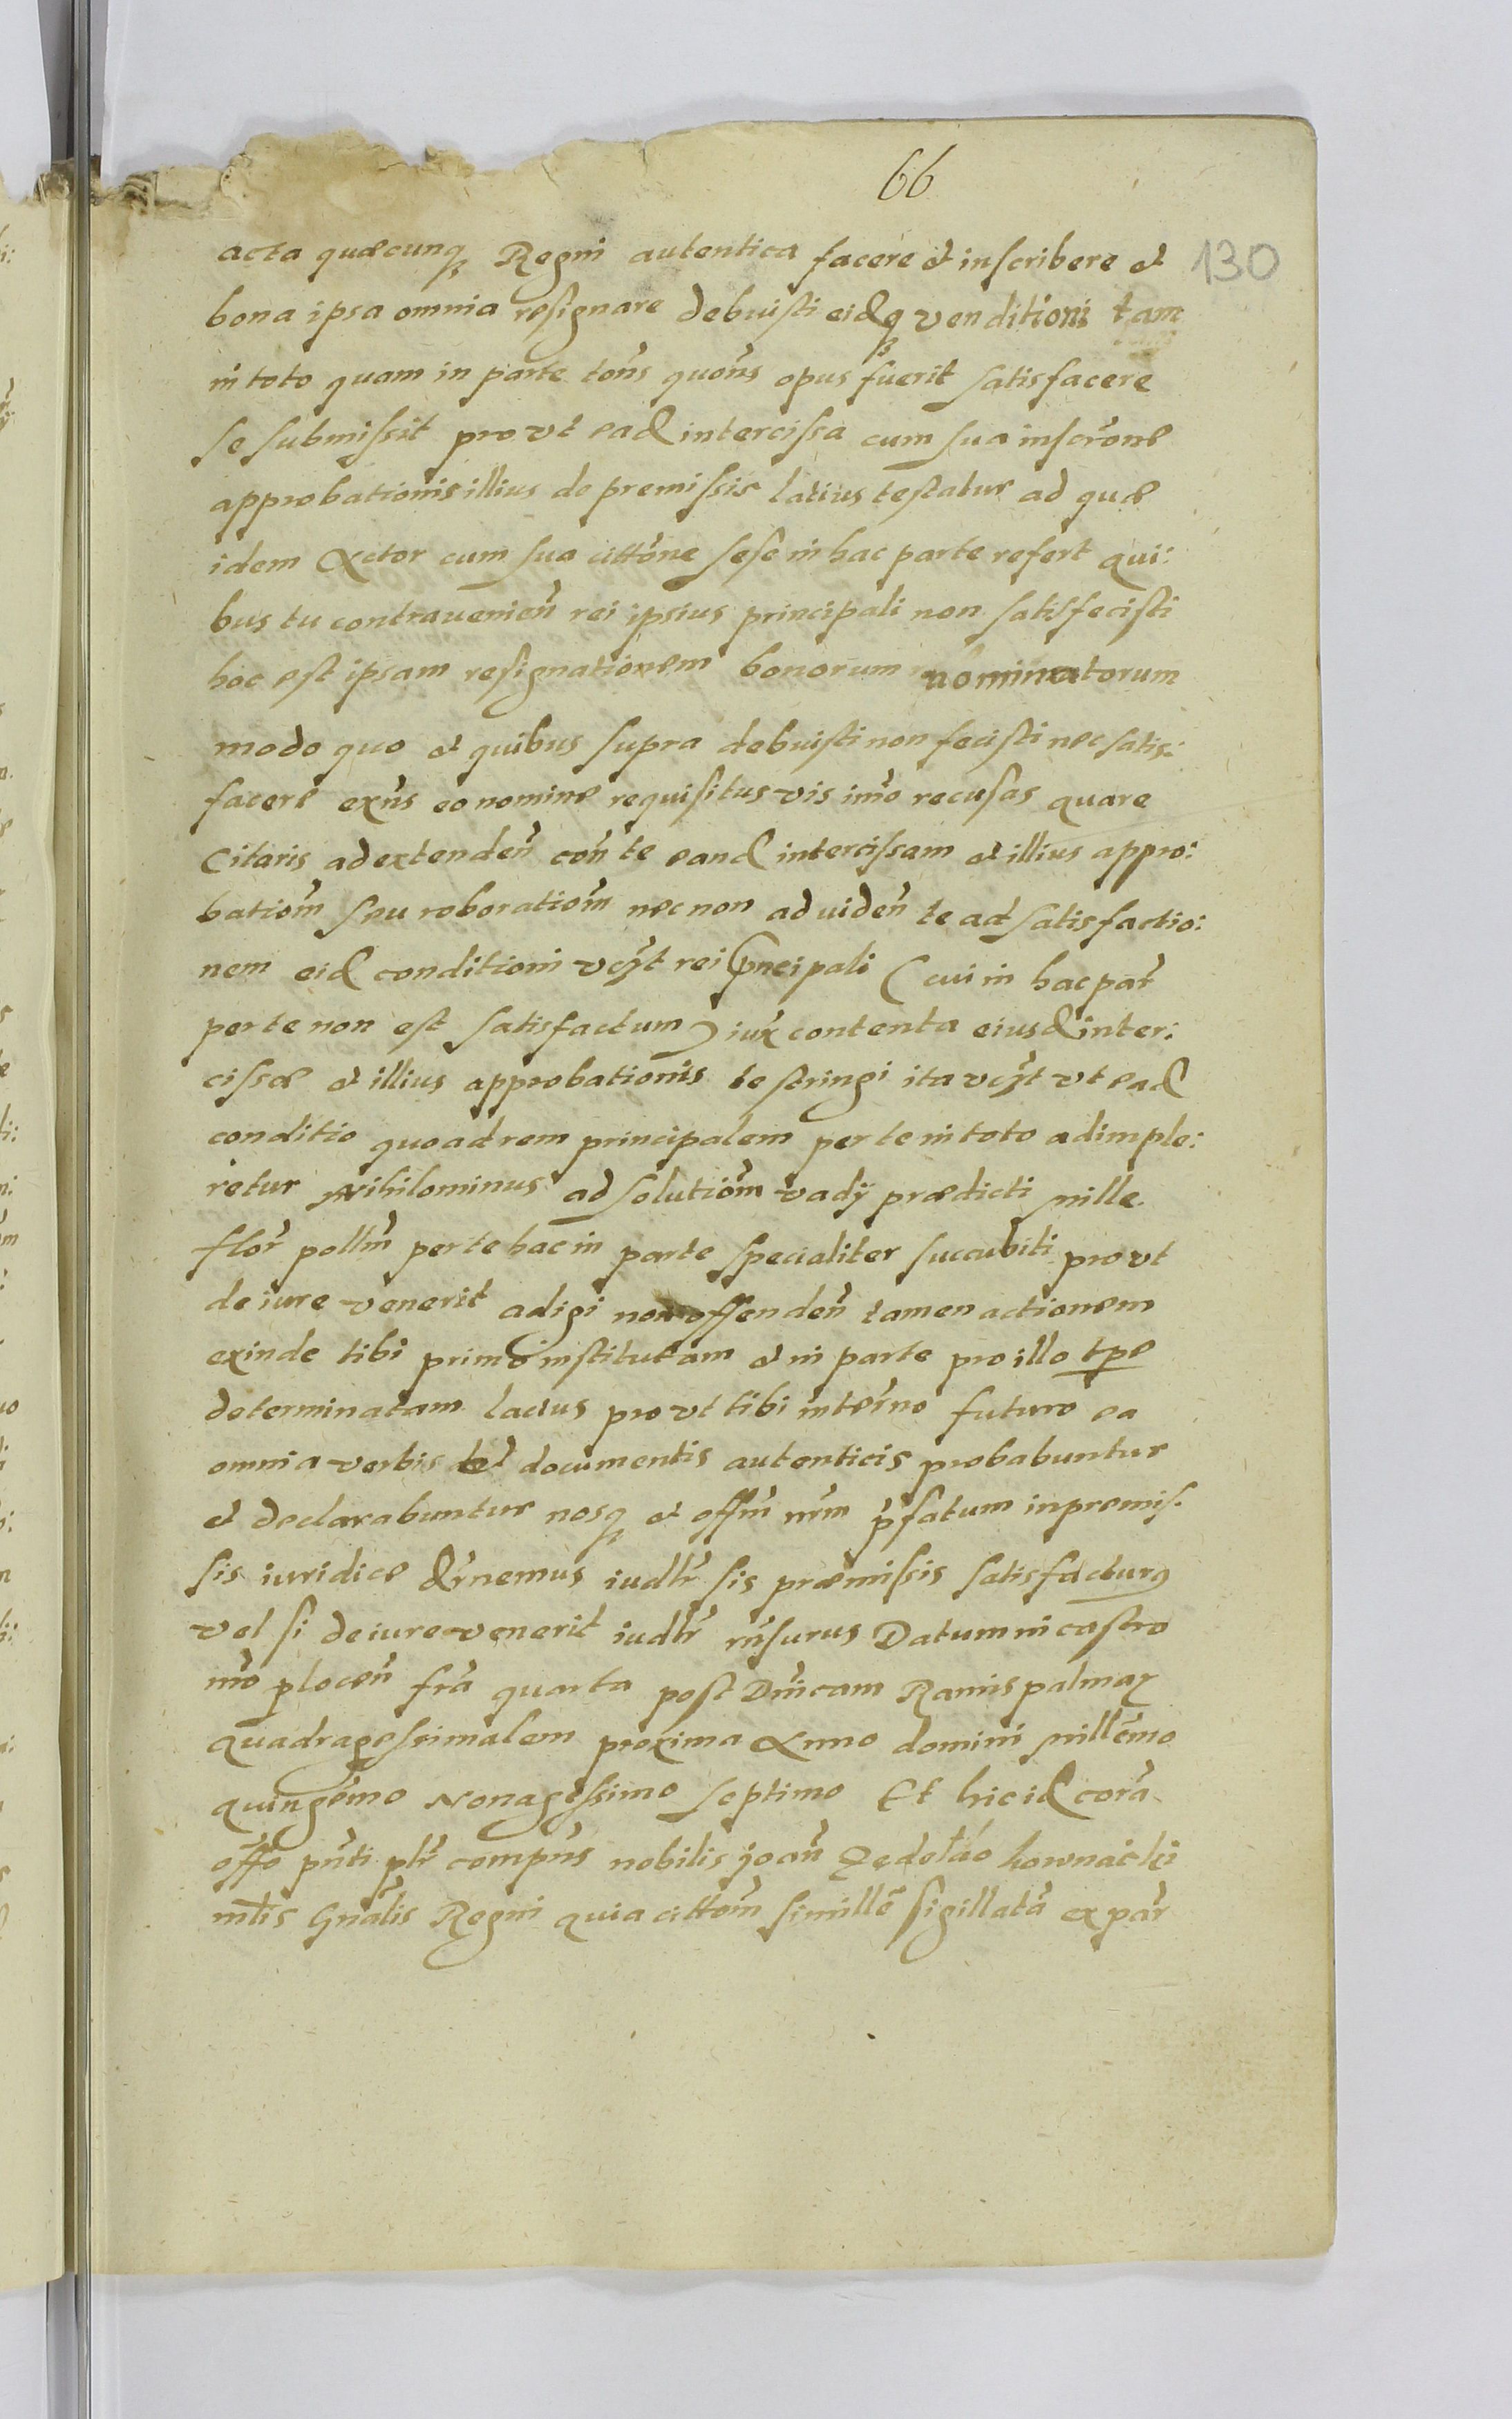 66
130
acta quæcunq Regni autentica facere et inscribere et
bona ipsa omnia resignare debuisti eidq venditioni tam
in toto quam in parte toñs quoñs opus fuerit satisfacere
se submissit pro vt ead intercissa cum sua inscrõne
approbationis illius de premissis latius testatur ad quæ
idem Actor cum sua cittõne sese in hac parte refert qui:
bus tu contraueniẽn rei ipsius principali non satisfecisti
hoc est ipsam resignationem bonorum nominatorum
modo quo et quibus supra debuisti non fecisti nec satis:
facere exñs eo nomine requisitus vis imo recusas quare
Citaris ad extendeñ coñ te eand intercissam et illius appro:
batiom̃ seu roboratiom̃ nec non ad videñ te ad satisfactio:
nem eid conditioni vczt rei pncipali (cui in hac par̃
per te non est satisfactum) iux contenta eiusd inter:
cissæ et illius approbationis te stringi ita vczt vt ead
conditio quoad rem principalem per te in toto adimple:
retur Nihilominus ad solutiom̃ vadÿ prædicti mille
flor̃ pollm̃ per te hac in parte specialiter succubiti pro vt
de iure venerit adigi non offendeñ tamen actionem
exinde tibi primo institutam et in parte pro illo tpe
determinatam lacius pro vt tibi in terño futuro ea
omnia verbis et documentis autenticis probabuntur
et declarabuntur nosq et offm̃ nrm p̃fatum in premis
sis iuridice dcernemus iudlr̃ sis præmissis satisfacturus
vel si de iure venerit iudlr̃ rñsurus Datum in castro
nr̃o ploceñ fr̃a quarta post Dñicam Ramispalmaꝝ
quadragessimalem proxima Anno domini millẽmo
quingẽmo Nonagessimo septimo Et hic id cora
offo pñti plr̃ compñs nobilis joañ kownacki
mlis Gnãlis Regni quia cittom̃ simillẽ sigillatã ex par̃